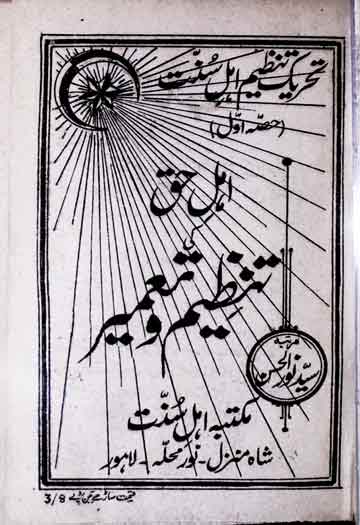 تحریک تنظیم اہل سنّت
(حصہ اوّل)
اہل حق
کی
تنظیم و تعمیر
مرتبہ
سیّد نور الحسن
مکتبہ اہل سنّت
شاہ منزل - نور محلہ - لاہور
قیمت ساڑھے تین روپے 3/8